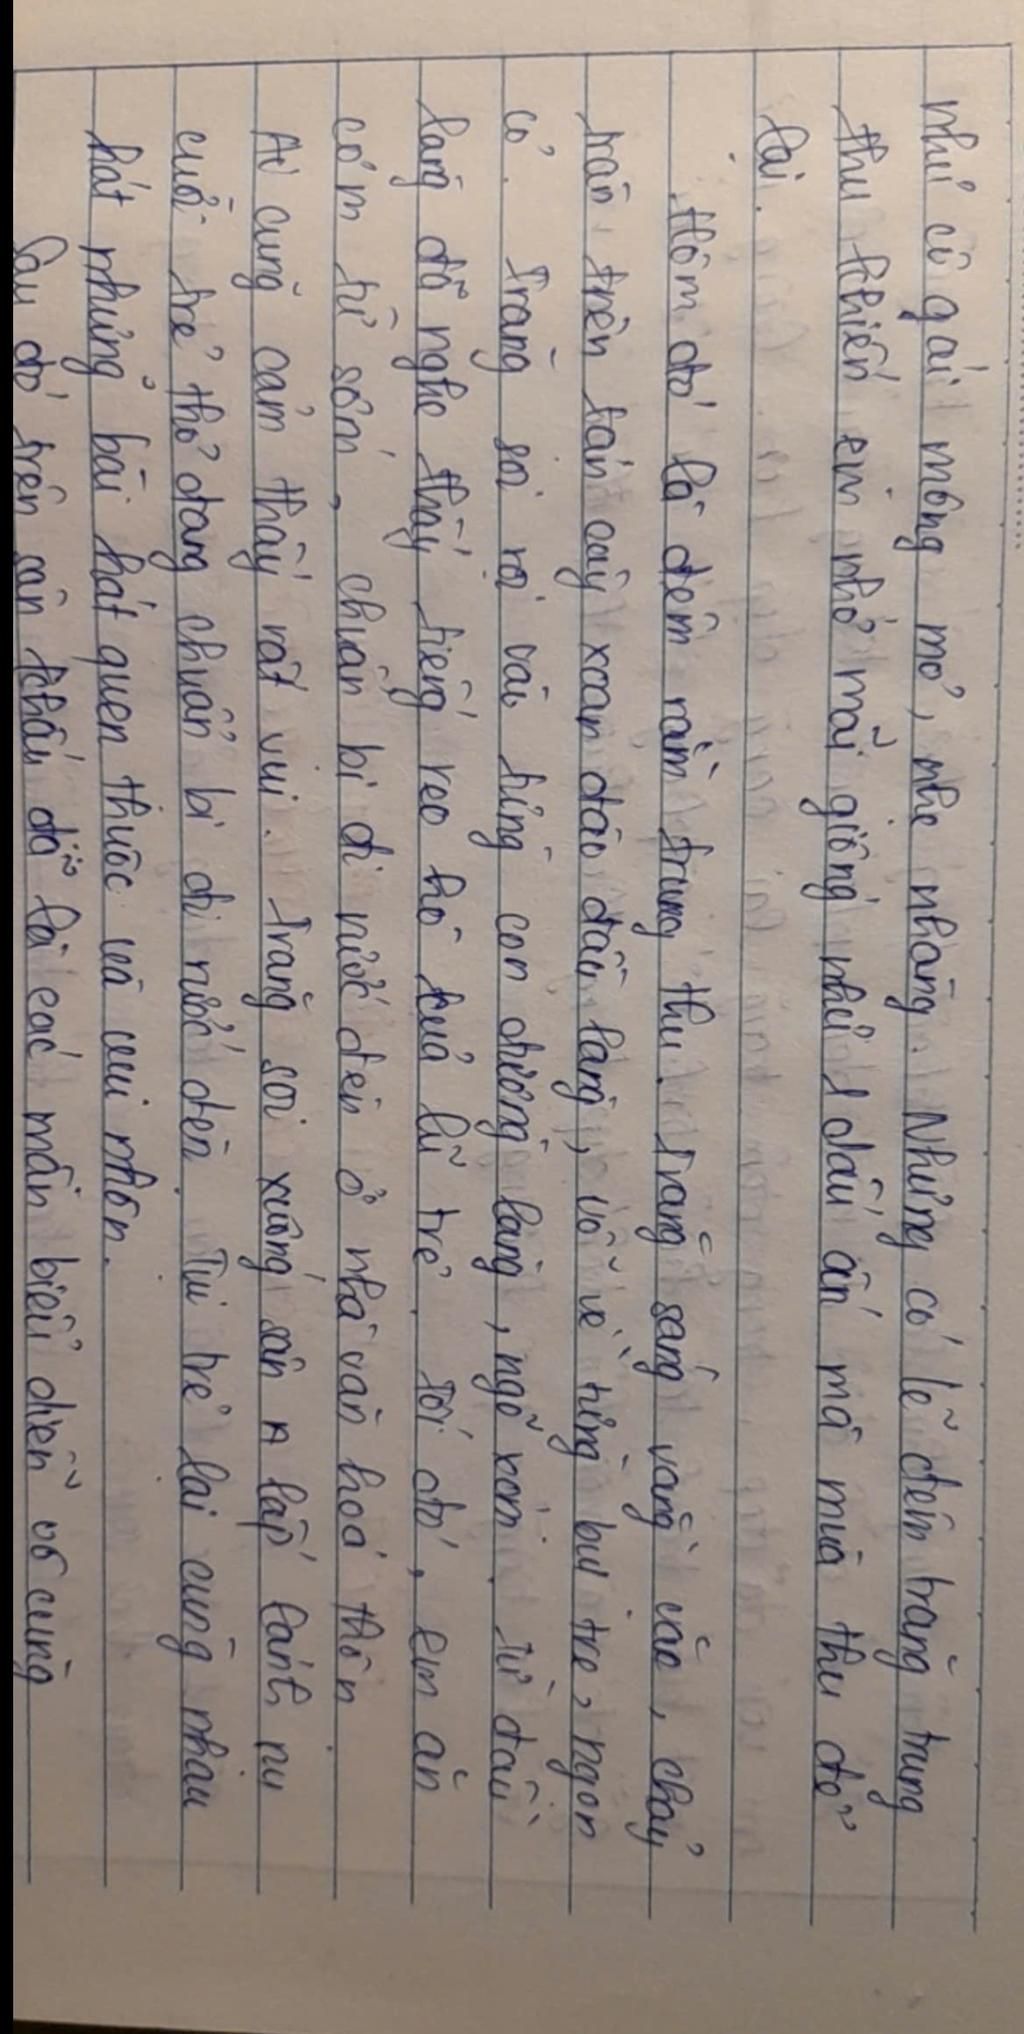 như cô gái mộng mơ, nhẹ nhàng. Nhưng có lẽ đêm trăng trung
thu khiến em nhớ mãi giống như 1 dấu ấn mà mùa thu để
lại.
Hôm đó là đêm rằm trung thu. Trăng sáng vằng vặc, chảy
tràn trên tán cây xoan đào đầu làng, vỗ về từng bụi tre, ngọn
cỏ. Trăng soi rọi vào từng con đường làng, ngõ xóm. Từ đầu
làng đã nghe thấy tiếng reo hò của lũ trẻ. Tối đó, em ăn
cơm từ sớm, chuẩn bị đi rước đèn ở nhà văn hoá thôn.
Ai cũng cảm thấy rất vui. Trăng soi xuống sân lấp lánh nụ
cười trẻ thơ đang chuẩn bị đi rước đèn. Tụi trẻ lại cùng nhau
hát những bài hát quen thuộc và vui nhộn.
Sau đó trên sân khấu đã là các màn biểu diễn vô cùng